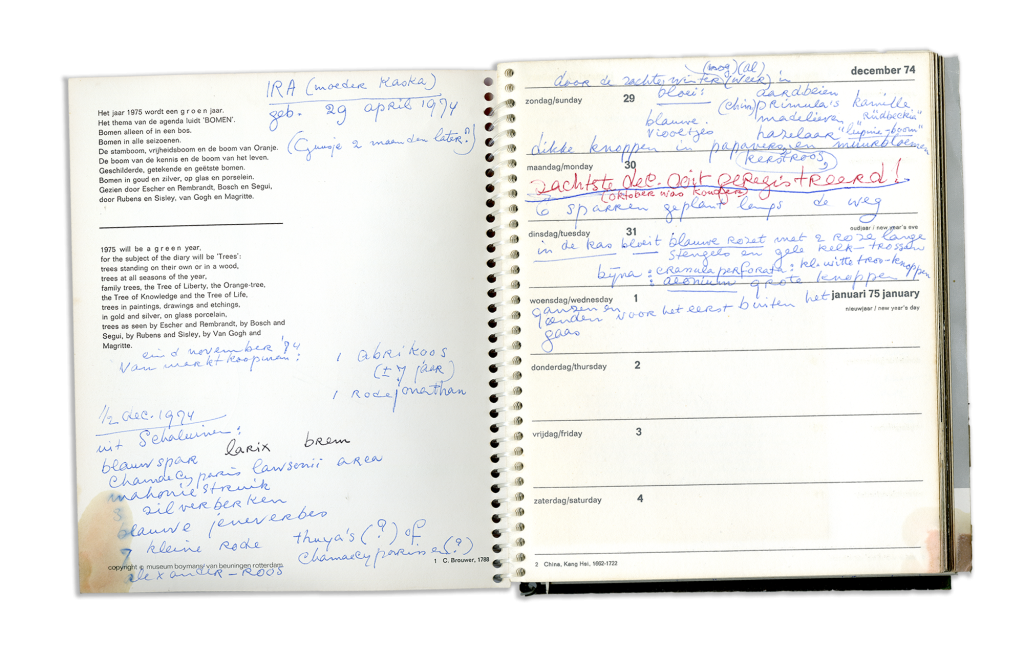 IRA (moeder Kaska)
geb. 29 april 1974
( 2 maanden later!)
Het jaar 1975 wordt een g r o e n jaar.
Het thema van de agenda luidt 'BOMEN'.
Bomen alleen of in een bos.
Bomen in alle seizoenen.
De stamboom, vrijheidsboom en de boom van Oranje.
De boom van de kennis en de boom van het leven.
Geschilderde, getekende en geëtste bomen.
Bomen in goud en zilver, op glas en porselein.
Gezien door Escher en Rembrandt, Bosch en Segui,
door Rubens en Sisley, van Gogh en Magritte.
1975 will be a g r e e n year,
for the subject of the diary will be 'Trees':
trees standing on their own or in a wood,
trees at all seasons of the year,
family trees, the Tree of Liberty, the Orange-tree,
the Tree of Knowledge and the Tree of Life,
trees in paintings, drawings and etchings,
in gold and silver, on glass porcelain,
trees as seen by Escher and Rembrandt, by Bosch and
Segui, by Rubens and Sisley, by Van Gogh and
Magritte.
eind november '74
van markt koopman:
1 abrikoos
(± 7 jaar)
1 Rode jonathan
1/2 dec. 1974
uit Schaluinen:
blauwspar larix brem
Chamaecyparis lawsonii
mahoniestruik
3 zilverberken
blauwe jeneverbes
7 kleine rode thuya's (?) of
chamaecyparissen (?)
alexander-roos
copyright museum boymans-van beuningen rotterdam
1 C. Brouwer, 1788
december 74
door de zachte winter (mog) (al) (weer) in
zondag/sunday 29
bloei: aardbeien
(chin) primula's kamille
blauwe madelieven "Rudbeckia"
viooltjes hazelaar
dikke knoppen in papaversen muurbloemen
(kerstroos)
maandag/monday 30
zachtste dec. ooit geregistreerd!
(oktober was koudger)
6 sparren geplant langs de weg
dinsdag/tuesday 31
oudjaar / new year's eve
in de kas bloeit blauwe rozet met 2 roze lange
stengels en gele kelk-trossen
bijna: crassula perforata: kl. witte tros-knoppen
: aeonium grote knoppen
woensdag/wednesday 1
januari 75 january
nieuwjaar / new year's day
ganzen en
eenden voor het eerst buiten het
gaas
donderdag/thursday 2
vrijdag/friday 3
zaterdag/saturday 4
2 China, Kang Hsi, 1662-1722